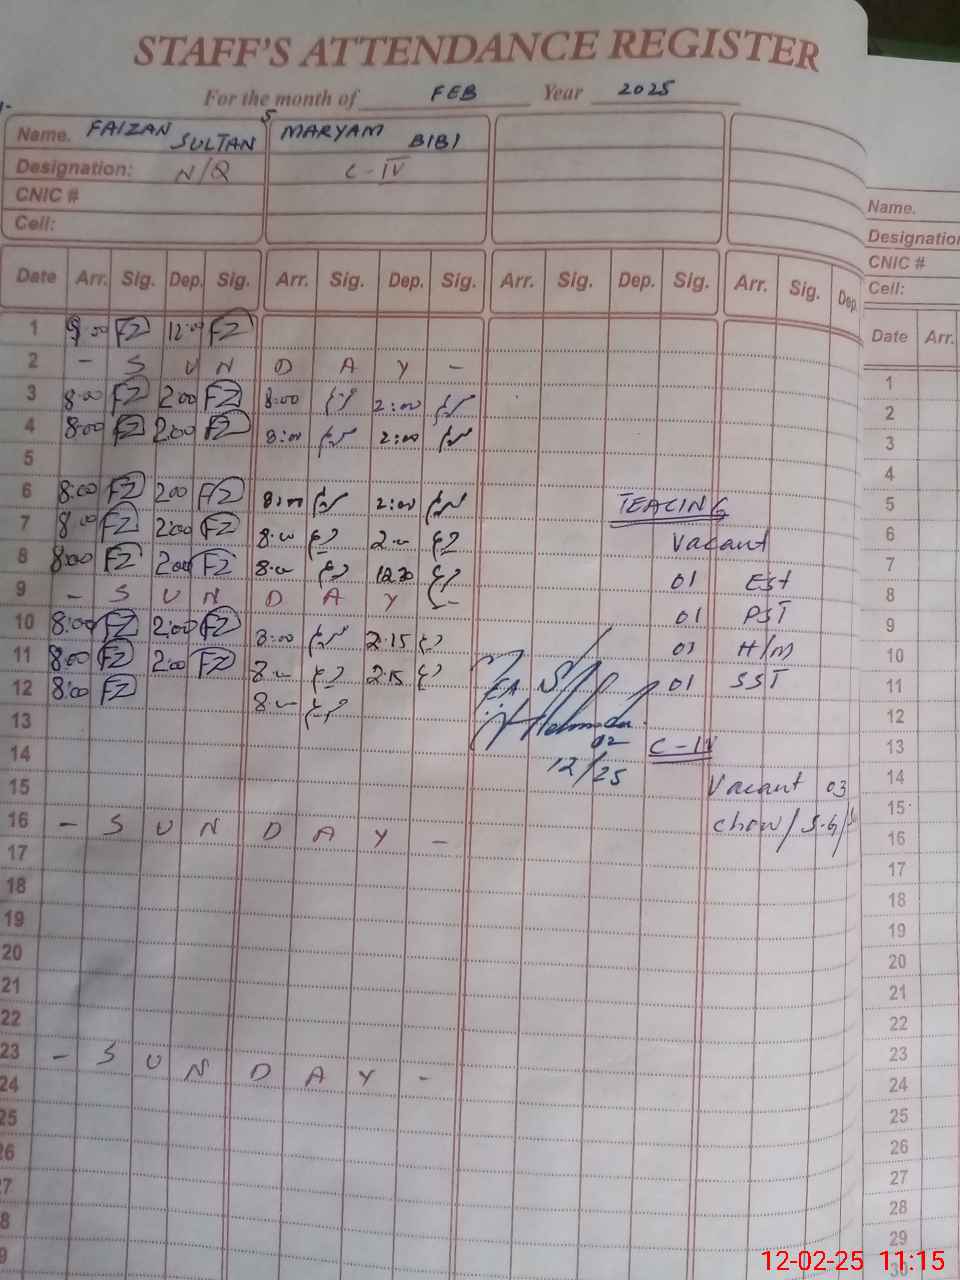 STAFF'S ATTENDANCE REGISTER
For the month of FEB Year 2025
Name. FAIZAN SULTAN MARYAM BIBI
Designation: N/Q C-IV
CNIC #
Cell:
Date Arr. Sig. Dep. Sig. Arr. Sig. Dep. Sig. Arr. Sig. Dep. Sig. Arr. Sig. Dep.
1 9:00 FZ 12:00 FZ
2 - S U N D A Y -
3 8:00 FZ 2:00 FZ 8:00 2:00
4 8:00 FZ 2:00 FZ 8:00 2:00
5
6 8:00 FZ 2:00 FZ 8:00 2:00
7 8:00 FZ 2:00 FZ 8:00 2:00
8 8:00 FZ 2:00 FZ 8:00 12:30
9 - S U N D A Y -
10 8:00 FZ 2:00 FZ 8:00 2:15
11 8:00 FZ 2:00 FZ 8:00 2:15
12 8:00 FZ 8:00
13
14
15
16 - S U N D A Y -
17
18
19
20
21
22
23 - S U N D A Y -
24
25
26
27
28
29
TEACING
Vacant
01 EST
01 PST
01 H/M
01 SST
02
12/25
C-IV
Vacant 03
chow/S.G/
Name.
Designation
CNIC #
Cell:
Date Arr.
1
2
3
4
5
6
7
8
9
10
11
12
13
14
15
16
17
18
19
20
21
22
23
24
25
26
27
28
29
30
12-02-25 11:15